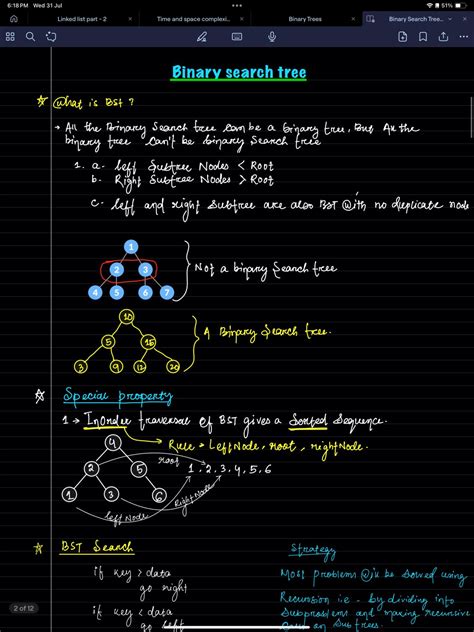 6:18 PM Wed 31 Jul
51%
Linked list part - 2
Time and space complexi...
Binary Trees
Binary Search Tree...
Binary search tree
What is BST ?
→ All the Binary Search tree can be a binary tree, But All the
binary tree can't be binary Search tree
1. a. left Subtree Nodes < Root
b. Right Subtree Nodes > Root
c. left and right Subtree are also BST with no duplicate node
1
2 3
4 5 6 7
Not a binary Search tree
10
5 15
3 9 12 20
A Binary Search tree.
Special property
1 → InOrder traversal of BST gives a Sorted Sequence.
Rule → Left Node, root, right Node.
4
2 5
1 3 6
root
1, 2, 3, 4, 5, 6
left Node
Right Node
BST Search
if key > data
go right
if key < data
go left
Strategy
Most problems will be solved using
Recursion i.e - by dividing into
Subproblems and making recursive
on subtrees.
2 of 12